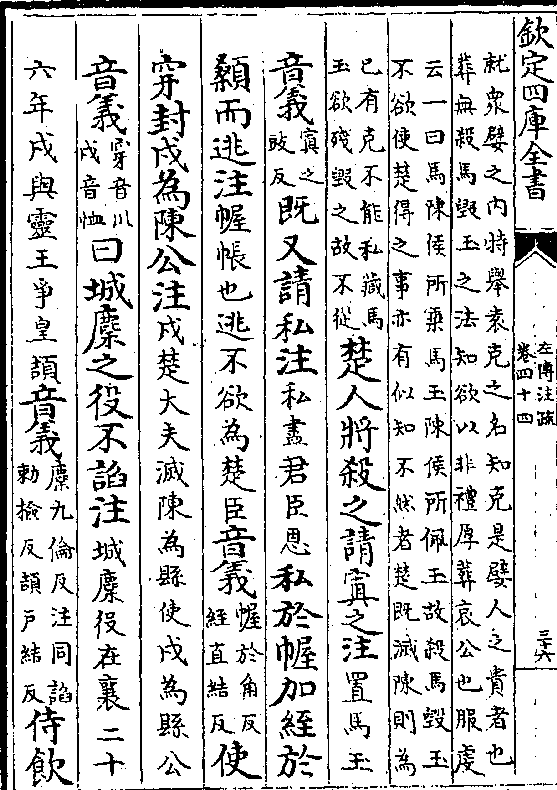 欽定四庫全書
左傳注疏
卷四十四
三六
就衆嬖之内特舉袁克之名知克是嬖人之貴者也
葬無殺馬毀玉之法知欲以非禮厚葬哀公也服虔
云一曰馬陳侯所乘馬玉陳侯所佩玉故殺馬毀玉
不欲使楚得之事亦有似知不然者楚既滅陳則為
已有克不能私藏馬
玉欲殘毀之故不從楚人將殺之請寘之注置馬玉
音義寘之豉反既又請私注私盡君臣恩私於幄加絰於
顙而逃注幄帳也逃不欲為楚臣音義幄於角反絰直結反使
穿封戌為陳公注戌楚大夫滅陳為縣使戌為縣公
音義穿音川戌音恤曰城麇之役不諂注城麇役在襄二十
六年戌與靈王爭皇頡音義麇九倫反注同諂勅檢反頡戸結反侍飲